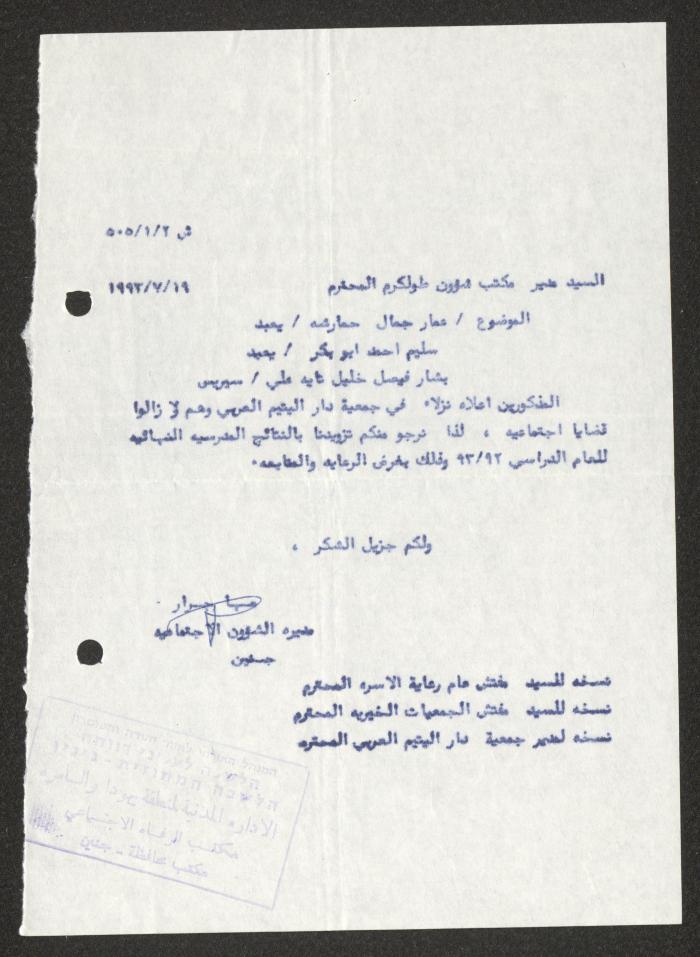 ش ٥٠٥/١/٢
السيد مدير مكتب شؤون طولكرم المحترم ١٩٩٣/٧/١٩
الموضوع / عمار جمال حمارشه / يعبد
سليم احمد ابو بكر / يعبد
بشار فيصل خليل تايه علي / سيريس
المذكورين اعلاه نزلاء في جمعية دار اليتيم العربي وهم لا زالوا
قضايا اجتماعيه ، لذا نرجو منكم تزويدنا بالنتائج المدرسيه النهائيه
للعام الدراسي ٩٣/٩٢ وذلك بغرض الرعايه والمتابعه٠
ولكم جزيل الشكر ،
جرار
مديره الشؤون الاجتماعيه
جنين
نسخه للسيد مفتش عام رعاية الاسره المحترم
نسخه للسيد مفتش الجمعيات الخيريه المحترم
نسخه لمدير جمعية دار اليتيم العربي المحترم
הלשכה המחוזית - ג'נין
الادارة المدنية لمنطقة يهودا والسامره
مكتب الرفاه الاجتماعي
مكتب محافظة - جنين